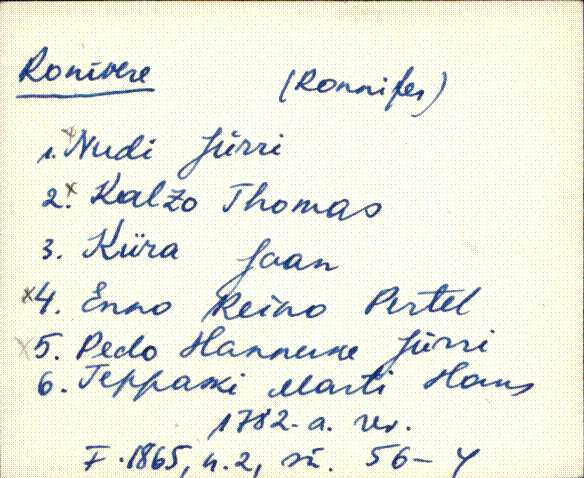 Ronivere (Ronnifer)
1. Nudi Jürri
2. Kalzo Thomas
3. Küra Jaan
4. Enno Reino Pertel
5. Pedo Hannuse Jürri
6. Teppaski Marti Hans
1782-a. rev.
F. 1865, n. 2, sü. 56-Y